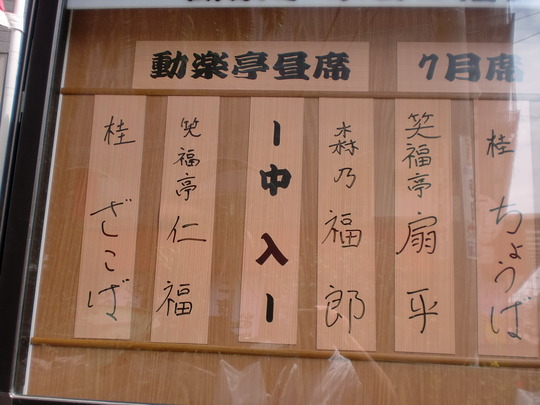 7月席
動楽亭昼席
桂 ちょうば
笑福亭 扇平
森乃 福郎
ー中入ー
笑福亭 仁福
桂 ざこば